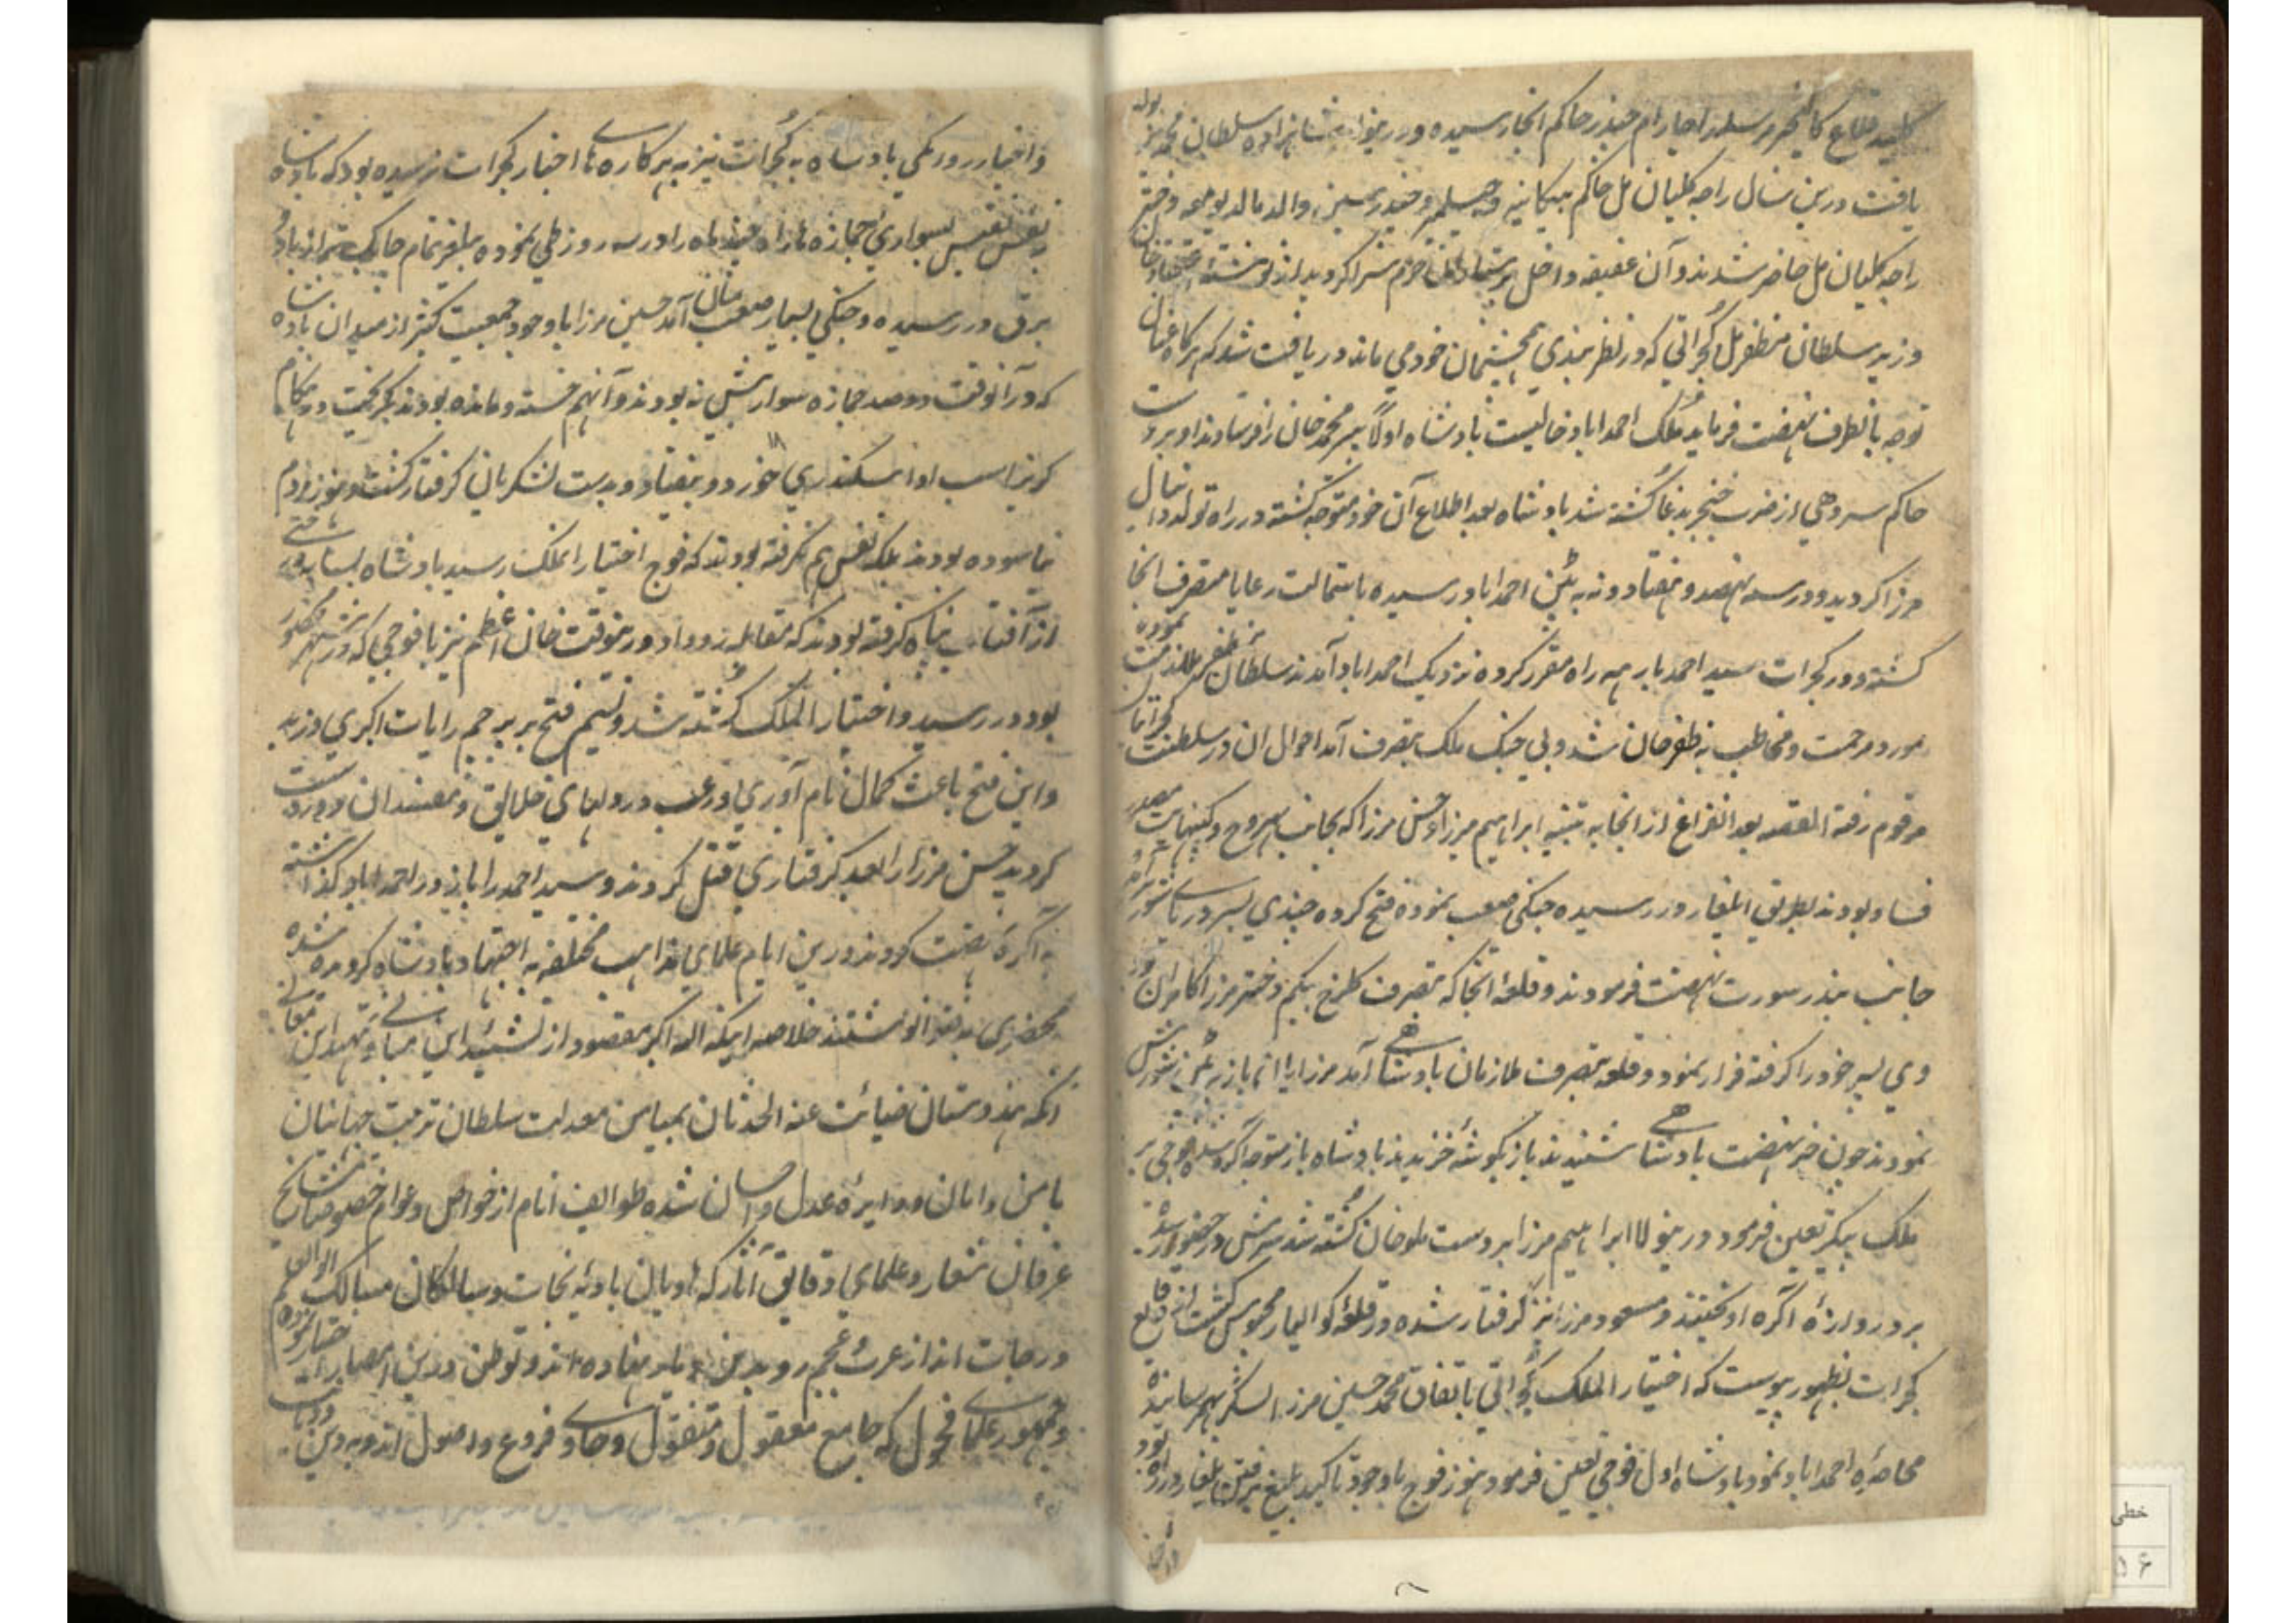 کلید قلاع کالنجر مرسله راجا رام چندر حاکم آنجا رسیده و درینولا شاهزاده سلطان محمد مراد تولد
یافت درین سال راجه کلیان مل حاکم بیکانیر و جیسلمیر و دختر
راجه کلیان مل حاضر شدند و آن عفیفه داخل پرستاران حرم سرا گردید از نوشته اعتماد خان
وزیر سلطان مظفر گجراتی که در نظربندی همچشمان خود می ماند دریافت شد که هرگاه عنان
توجه بآنطرف نهضت فرماید ملک احمداباد خالیست بادشاه اولاً میر محمد خان را فرستادند او بر دست
حاکم سروهی از ضرب خنجر بدغا کشته شد بادشاه بعد اطلاع آن خود متوجه گشته در راه تولد دانیال
مرزا گردید و در سنه نهصد و هفتاد و نه به پتن احمداباد رسیده باستمالت رعایا متصرف آنجا
گشته و در گجرات سید احمد بارهه را مقرر کرده نزدیک احمداباد آمدند سلطان مظفر ملازمت نموده
مورد مرحمت و مخاطب به ظفر خان شد و بی جنگ ملک بتصرف آمد احوال آن در سلطنت گجراتیان
مرقوم رفته القصه بعد انفراغ از آنجا به تنبیه ابراهیم مرزا و حسین مرزا که بجانب بهروچ و کنبهایت مصدر
فساد بودند بطریق ایلغار در رسیده جنگی صعب نموده فتح کرده چندی بسیر دریای شور
جانب بندر سورت نهضت فرمودند و قلعه آنجا که بتصرف گلرخ بیگم دختر مرزا کامران بود
وی پسر خود را گرفته فرار نمود و قلعه بتصرف ملازمان بادشاهی آمد مرزایان باز به پتن شورش
نمودند چون خبر نهضت بادشاهی شنیدند باز بگوشه خزیدند بادشاه باز متوجه آگره شده فوجی بر
ملک بیکر تعین فرمود درینولا ابراهیم مرزا بر دست ملوخان کشته شد سرش در حضور رسید
بر دروازه آگره آویختند و مسعود مرزا نیز گرفتار شده در قلعه گوالیار محبوس گشت از وقایع
گجرات بظهور پیوست که اختیار الملک گجراتی باتفاق محمد حسین مرزا لشکر بهم رسانیده
محاصره احمداباد نمود بادشاه اول فوجی تعین فرمود هنوز فوج باوجود تاکید بلیغ برفتن ایلغار در راه بود
و اخبار روانگی بادشاه به گجرات نیز به هرکاره های اخبار گجرات نرسیده بود که بادشاه
بنفس نفیس بسواری جمازه ها راه چند ماه را در سه روز طی نموده بیلغر تمام چابک تر از باد و
برق در رسیده و جنگی بسیار صعب بمیان آمد حسین مرزا باوجود جمعیت کثیر از میدان بادشاه
که در آنوقت دو صد جمازه سوار بیش نه بودند و آنهم خسته و مانده بودند بگریخت و هنگام
گریز اسب او سکندری خورد و بیفتاد و بدست لشکریان گرفتار گشت و هنوز مردم
نیاسوده بودند بلکه نفس هم نگرفته بودند که فوج اختیار الملک رسید بادشاه بسایه درختی
از آفتاب پناه گرفته بودند که مقابله رو داد درینوقت خان اعظم نیز با فوجی که در شهر محصور
بود در رسید و اختیار الملک کشته شد و نسیم فتح بر پرچم رایات اکبری وزید
و این فتح باعث کمال نام آوری و رعب در دلهای خلایق و مفسدان دوردست
گردید حسین مرزا را بعد گرفتاری قتل کردند و سید احمد را باز در احمداباد گذاشته
به آگره نهضت کردند درین ایام علمای مذاهب مختلفه به اجتهاد بادشاه گرویده شده
محضری نوشتند خلاصه اینکه الله اکبر مقصود از تشیید این مبانی و تمهید این معانی
آنکه هندوستان صیانت عنه الحدثان بمیامن معدلت سلطان تربیت جهانبان
بامن و امان و دایره عدل و احسان شده طوایف انام از خواص و عوام خصوصا مشایخ
عرفان شعار و علمای دقایق آثار که هادیان بادیه نجات و سالکان مسالک اوتوا العلم
درجات اند از عرب و عجم رو بدین دیار نهاده اند و توطن درین دیار اختیار نموده
و جمهور علمای فحول که جامع معقول و منقول و حاوی فروع و اصول اند و بدین و دیانت
خطی
۵۶